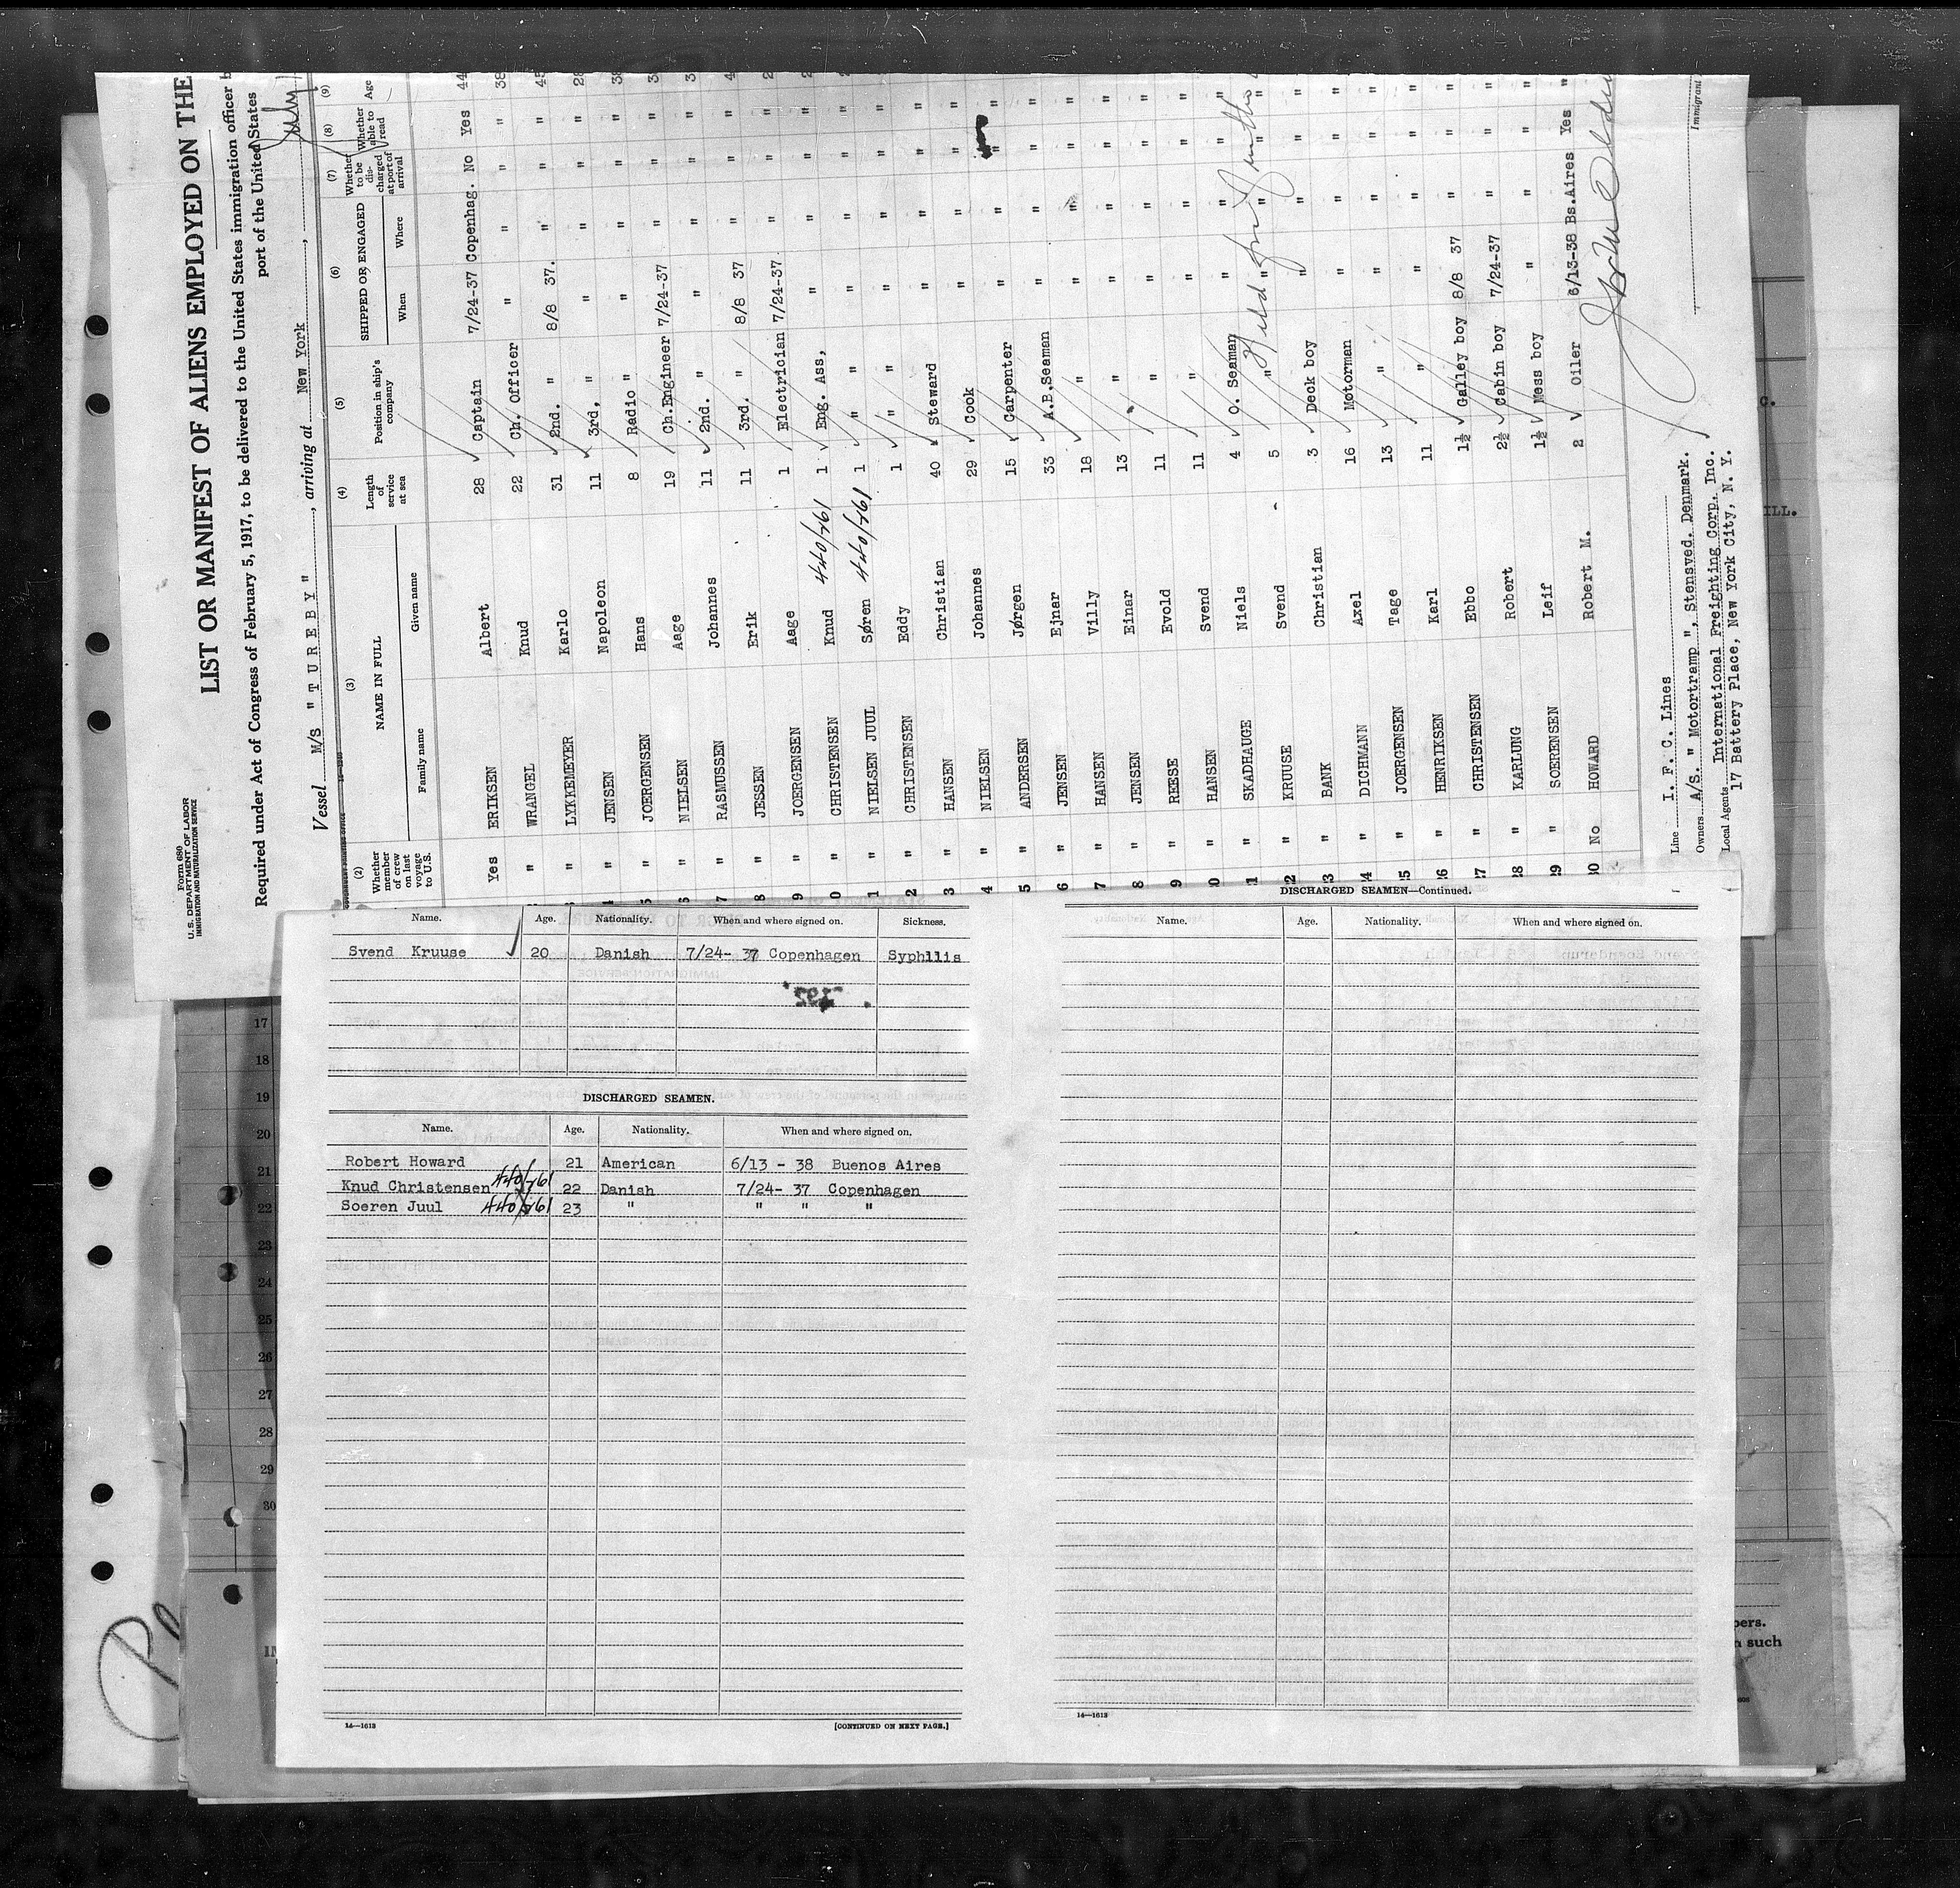 Form 680
U. S. DEPARTMENT OF LABOR
IMMIGRATION AND NATURALIZATION SERVICE
LIST OR MANIFEST OF ALIENS EMPLOYED ON THE
Required under Act of Congress of February 5, 1917, to be delivered to the United States immigration officer b
port of the United States
Vessel M/S " T U R E B Y ", arriving at New York, July
(2) (3) (4) (5) (6) (7) (8) (9)
Whether member of crew on last voyage to U.S. NAME IN FULL Length of service at sea Position in ship's company SHIPPED OR ENGAGED Whether to be discharged at port of arrival Whether able to read Age
Family name Given name When Where
Yes ERIKSEN Albert 28 Captain 7/24-37 Copenhag. No Yes 44
" WRANGEL Knud 22 Ch. Officer " " " " 38
" LYKKEMEYER Karlo 31 2nd. " 8/8 37. " " " 45
" JENSEN Napoleon 11 3rd, " " " " " 28
" JOERGENSEN Hans 8 Radio " " " " " 38
6 " NIELSEN Aage 19 Ch.Engineer 7/24-37 " " "
7 " RASMUSSEN Johannes 11 2nd. " " " " "
8 " JESSEN Erik 11 3rd. " 8/8 37 " " "
9 " JOERGENSEN Aage 1 Electrician 7/24-37 " " "
0 " CHRISTENSEN Knud 440/761 1 Eng. Ass, " " " "
1 " NIELSEN JUUL Søren 440/761 1 " " " " " "
2 " CHRISTENSEN Eddy 1 " " " " " "
3 " HANSEN Christian 40 Steward " " " "
4 " NIELSEN Johannes 29 Cook " " " "
5 " ANDERSEN Jørgen 15 Carpenter " " " "
6 " JENSEN Ejnar 33 A.B.Seaman " " " "
7 " HANSEN Villy 18 " " " " "
8 " JENSEN Einar 13 " " " " "
9 " REESE Evold 11 " " " " "
0 " HANSEN Svend 11 " " " " "
1 " SKADHAUGE Niels 4 O. Seaman " " " "
2 " KRUUSE Svend 5 " Held for " " " "
3 " BANK Christian 3 Deck boy " " " "
24 " DICHMANN Axel 16 Motorman " " " "
25 " JOERGENSEN Tage 13 " " " " "
26 " HENRIKSEN Karl 11 " " " " "
27 " CHRISTENSEN Ebbo 1½ Galley boy 8/8 37 " " "
28 " KARLUNG Robert 2½ Cabin boy 7/24-37 " " "
29 " SOERENSEN Leif 1½ Mess boy " " " "
30 No HOWARD Robert M. 2 Oiler 6/13-38 Bs.Aires Yes "
Line I. F. C. Lines
Owners A/S. " Motortramp ", Stensved. Denmark.
Local Agents International Freighting Corp. Inc.
17 Battery Place, New York City, N. Y.
Immigrant
C.
ILL.
Name. Age. Nationality. When and where signed on. Sickness.
Svend Kruuse 20 Danish 7/24- 37 Copenhagen Syphllis
DISCHARGED SEAMEN.
Name. Age. Nationality. When and where signed on.
Robert Howard 21 American 6/13 - 38 Buenos Aires
Knud Christensen 440/761 22 Danish 7/24- 37 Copenhagen
Soeren Juul 440/761 23 " " " "
14—1613
[CONTINUED ON NEXT PAGE.]
DISCHARGED SEAMEN—Continued.
Name. Age. Nationality. When and where signed on.
14—1613
17
18
19
20
21
22
23
24
25
26
27
28
29
30
pers.
n such